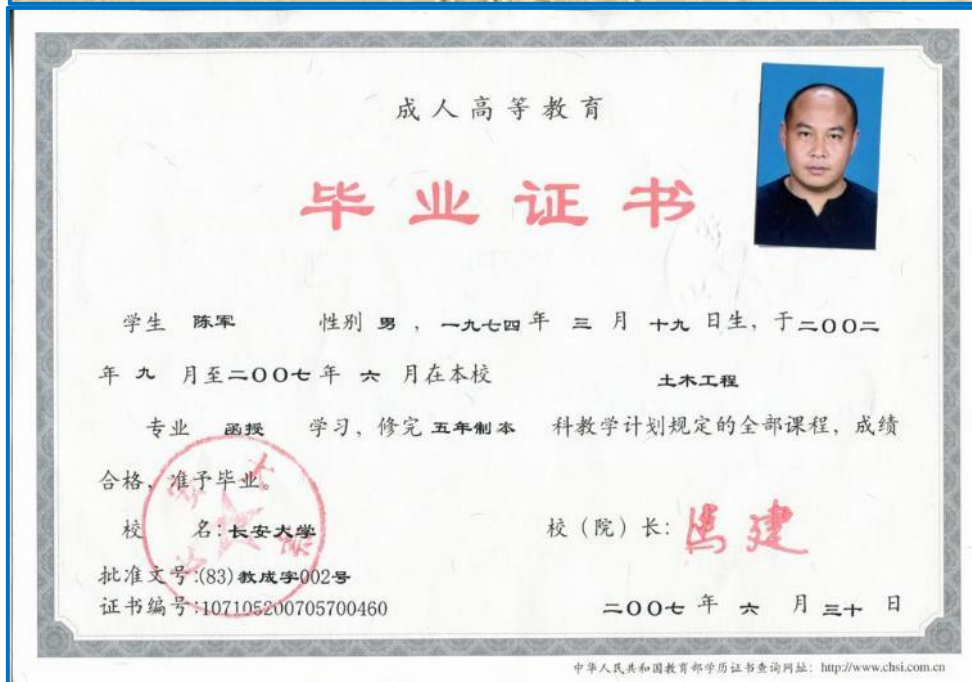 成人高等教育
毕业证书
学生 陈军 性别 男 ，一九七四 年 三 月 十九 日生，于二〇〇二
年 九 月至二〇〇七 年 六 月在本校 土木工程
专业 函授 学习，修完 五年制本 科教学计划规定的全部课程，成绩
合格，准予毕业。
校 名：长安大学 校（院）长：马建
批准文号:(83)教成字002号
证书编号:107105200705700460 二〇〇七 年 六 月 三十 日
中华人民共和国教育部学历证书查询网址：http://www.chsi.com.cn